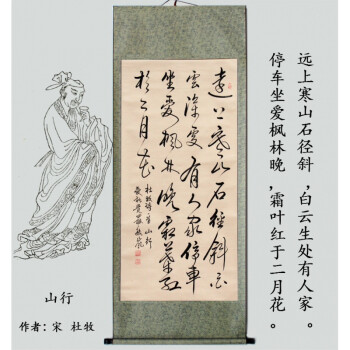 远上寒山石径斜，白云生处有人家。
停车坐爱枫林晚，霜叶红于二月花。
遠上寒山石徑斜白
雲深處有人家停車
坐愛楓林晚霜葉紅
於二月花
杜牧詩 山行
山行
作者：宋 杜牧